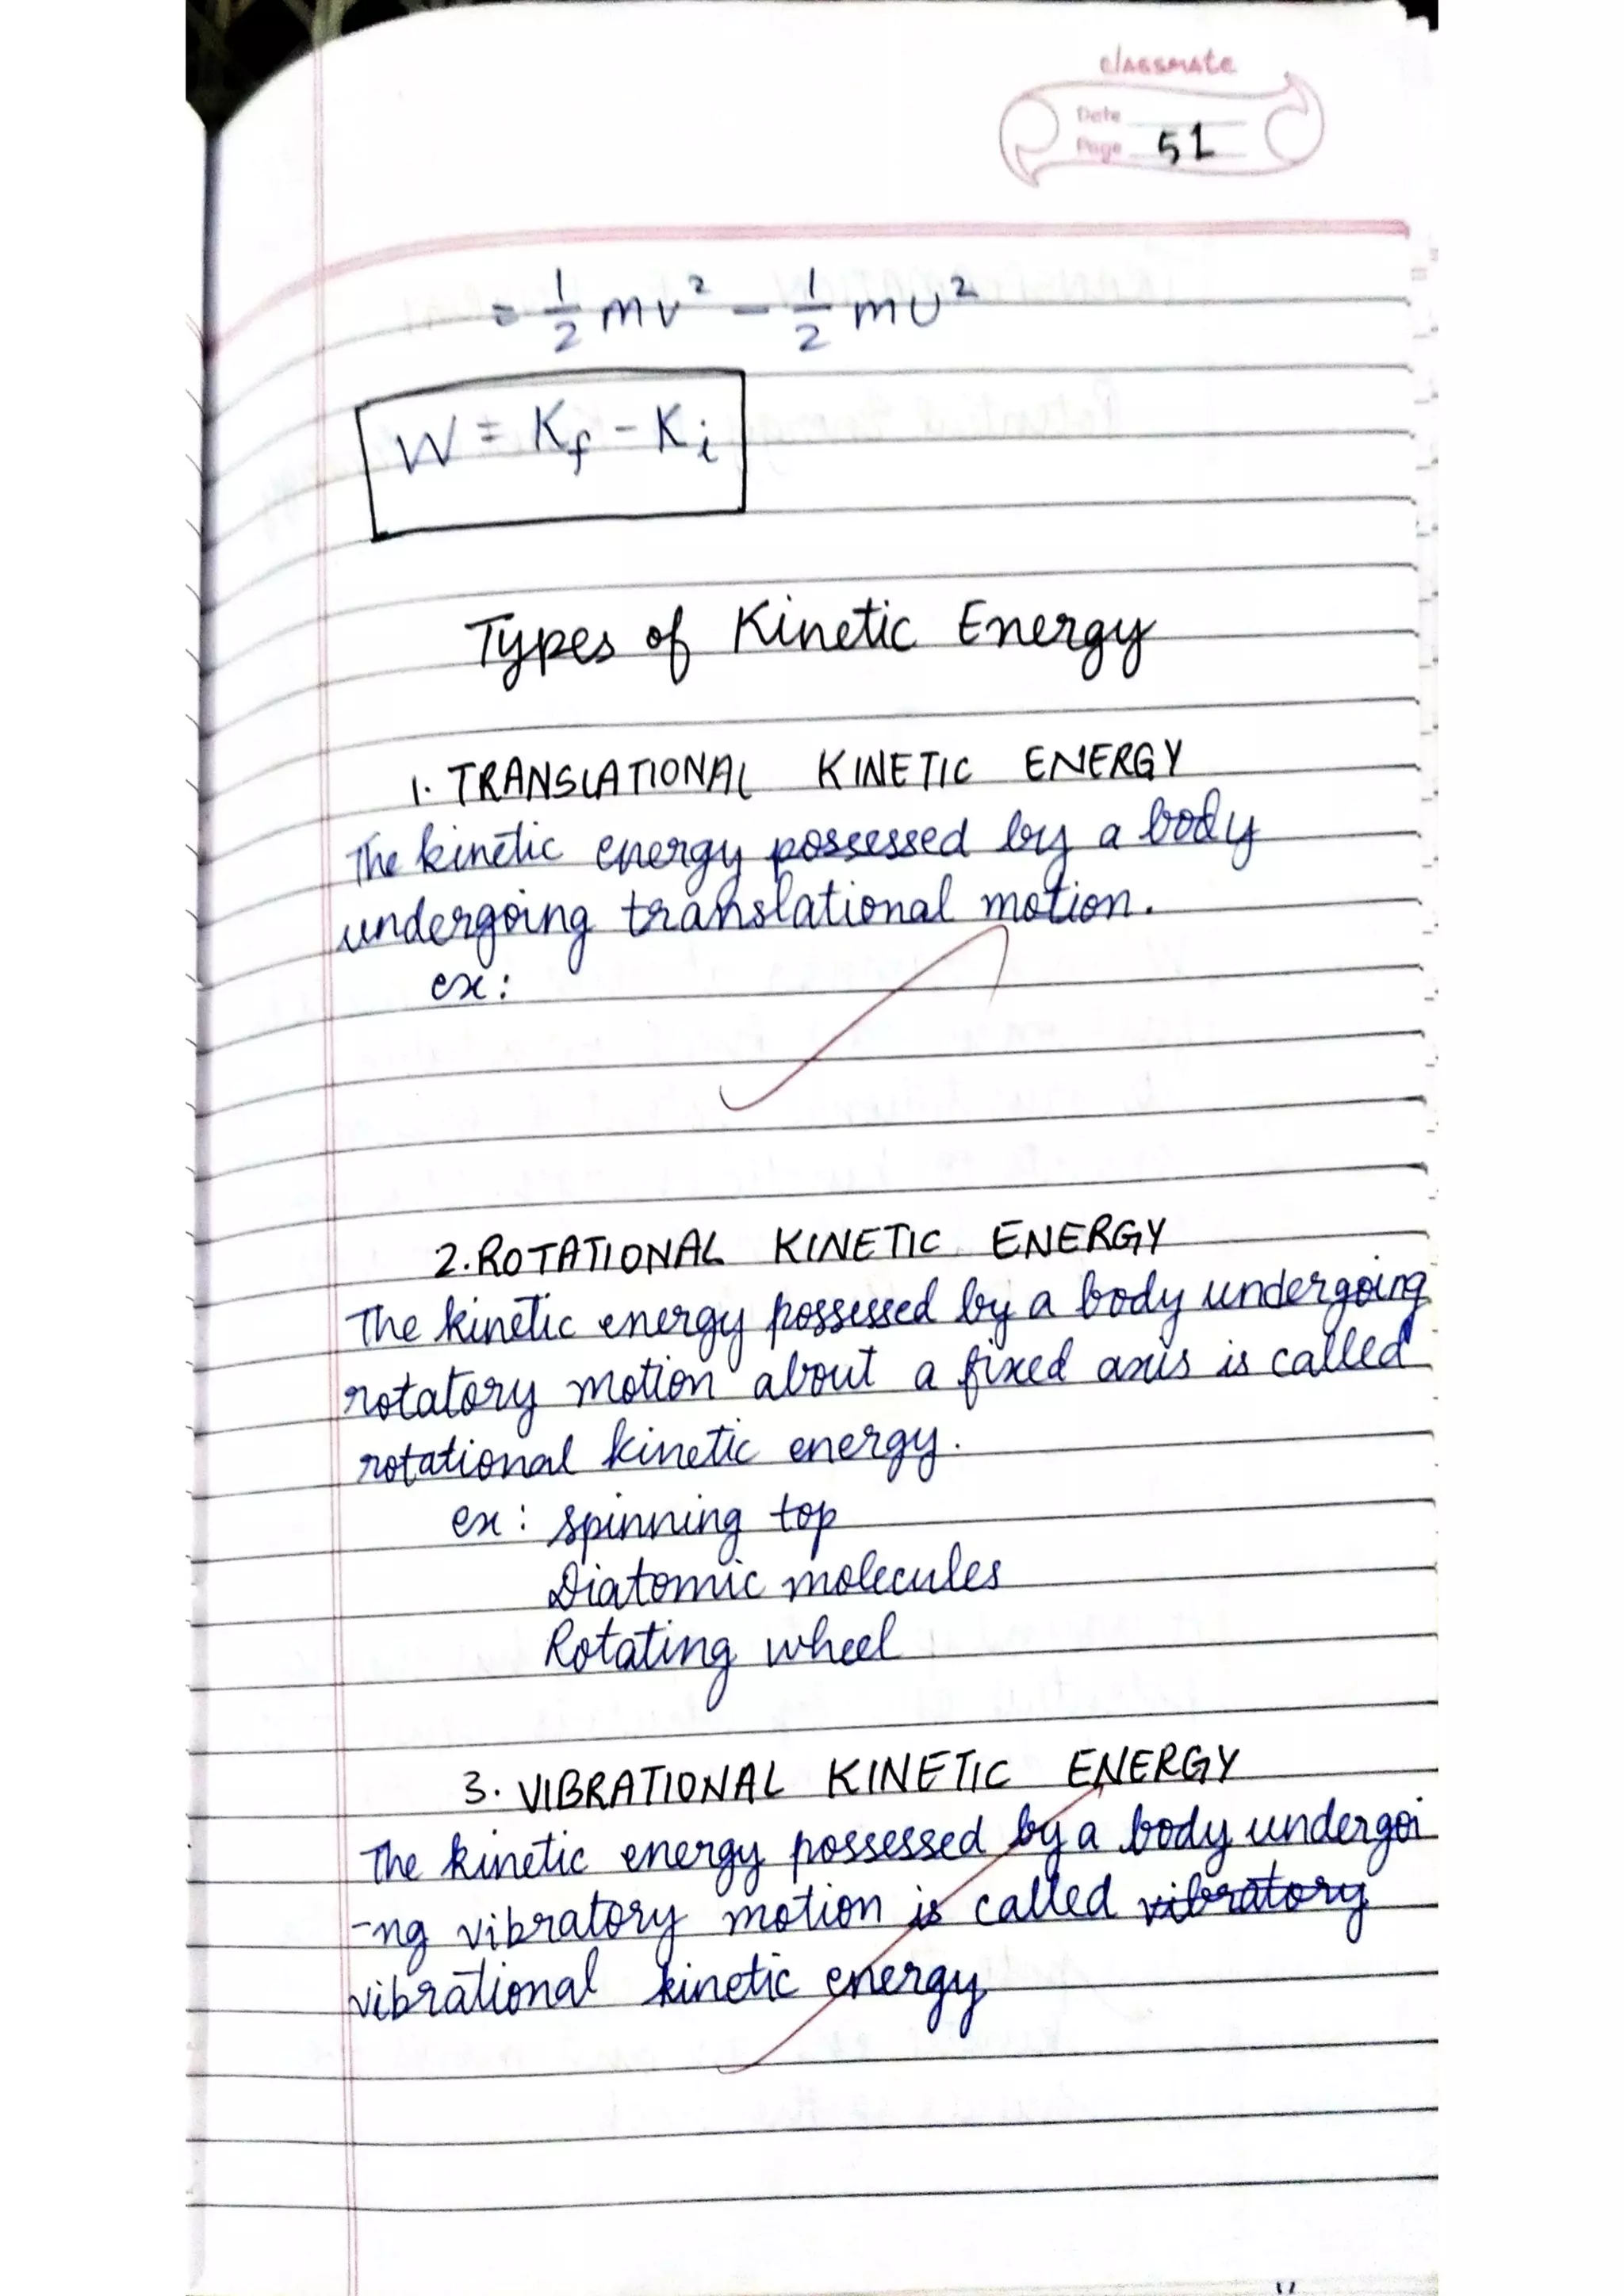 classmate
Date
Page 51
= 1/2 mv² - 1/2 mu²
W = Kf - Ki
Types of Kinetic Energy
1. TRANSLATIONAL KINETIC ENERGY
The kinetic energy possessed by a body
undergoing translational motion.
ex:
2. ROTATIONAL KINETIC ENERGY
The kinetic energy possessed by a body undergoing
rotatory motion about a fixed axis is called
rotational kinetic energy.
ex: spinning top
Diatomic molecules
Rotating wheel
3. VIBRATIONAL KINETIC ENERGY
The kinetic energy possessed by a body undergoi
-ng vibratory motion is called vibratory
vibrational kinetic energy